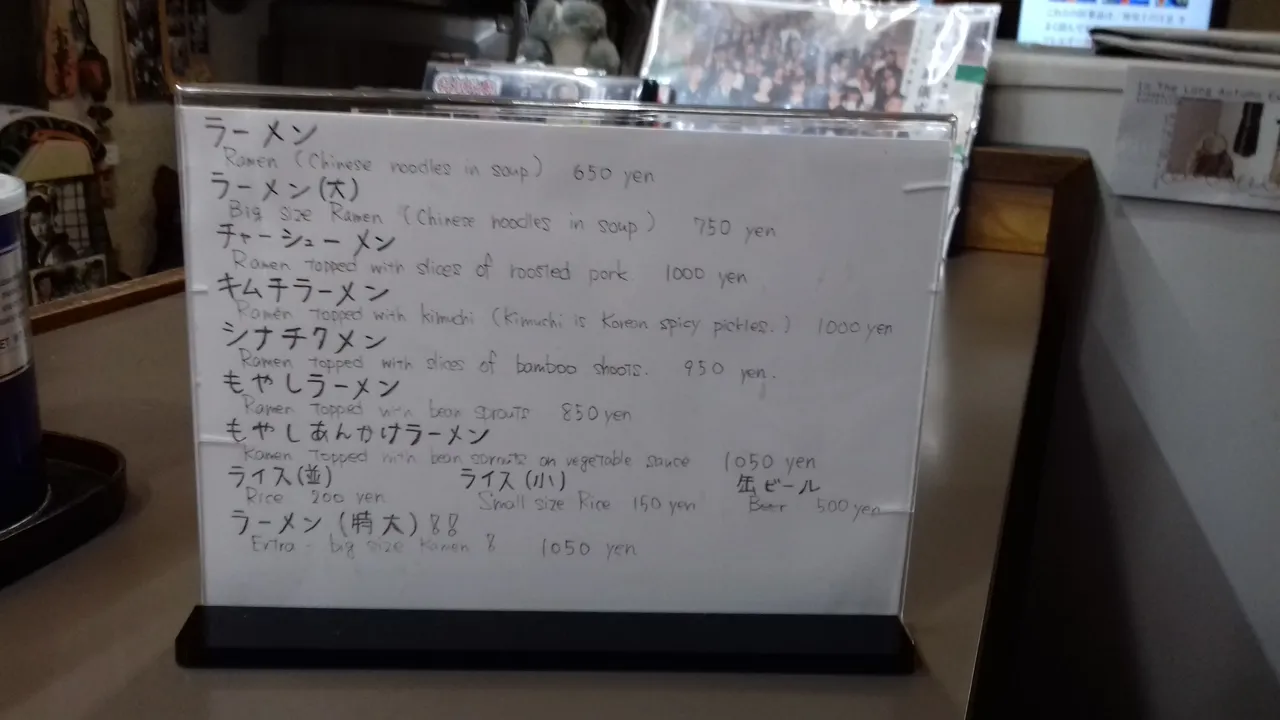 ラーメン
Ramen (Chinese noodles in soup) 650 yen
ラーメン(大)
Big size Ramen (Chinese noodles in soup) 750 yen
チャーシューメン
Ramen Topped with slices of roosted pork 1000 yen
キムチラーメン
Ramen Topped with kimuchi (Kimuchi is Korean spicy pickles.) 1000 yen
シナチクメン
Ramen Topped with slices of bamboo shoots. 950 yen.
もやしラーメン
Ramen Topped with bean sprouts 850 yen
もやしあんかけラーメン
Ramen Topped with bean sprouts on vegetable sauce 1050 yen
ライス(並) ライス(小) 缶ビール
Rice 200 yen Small size Rice 150 yen Beer 500 yen
ラーメン(特大)!!
Extra - big size Ramen ! 1050 yen
In The Long Autumn